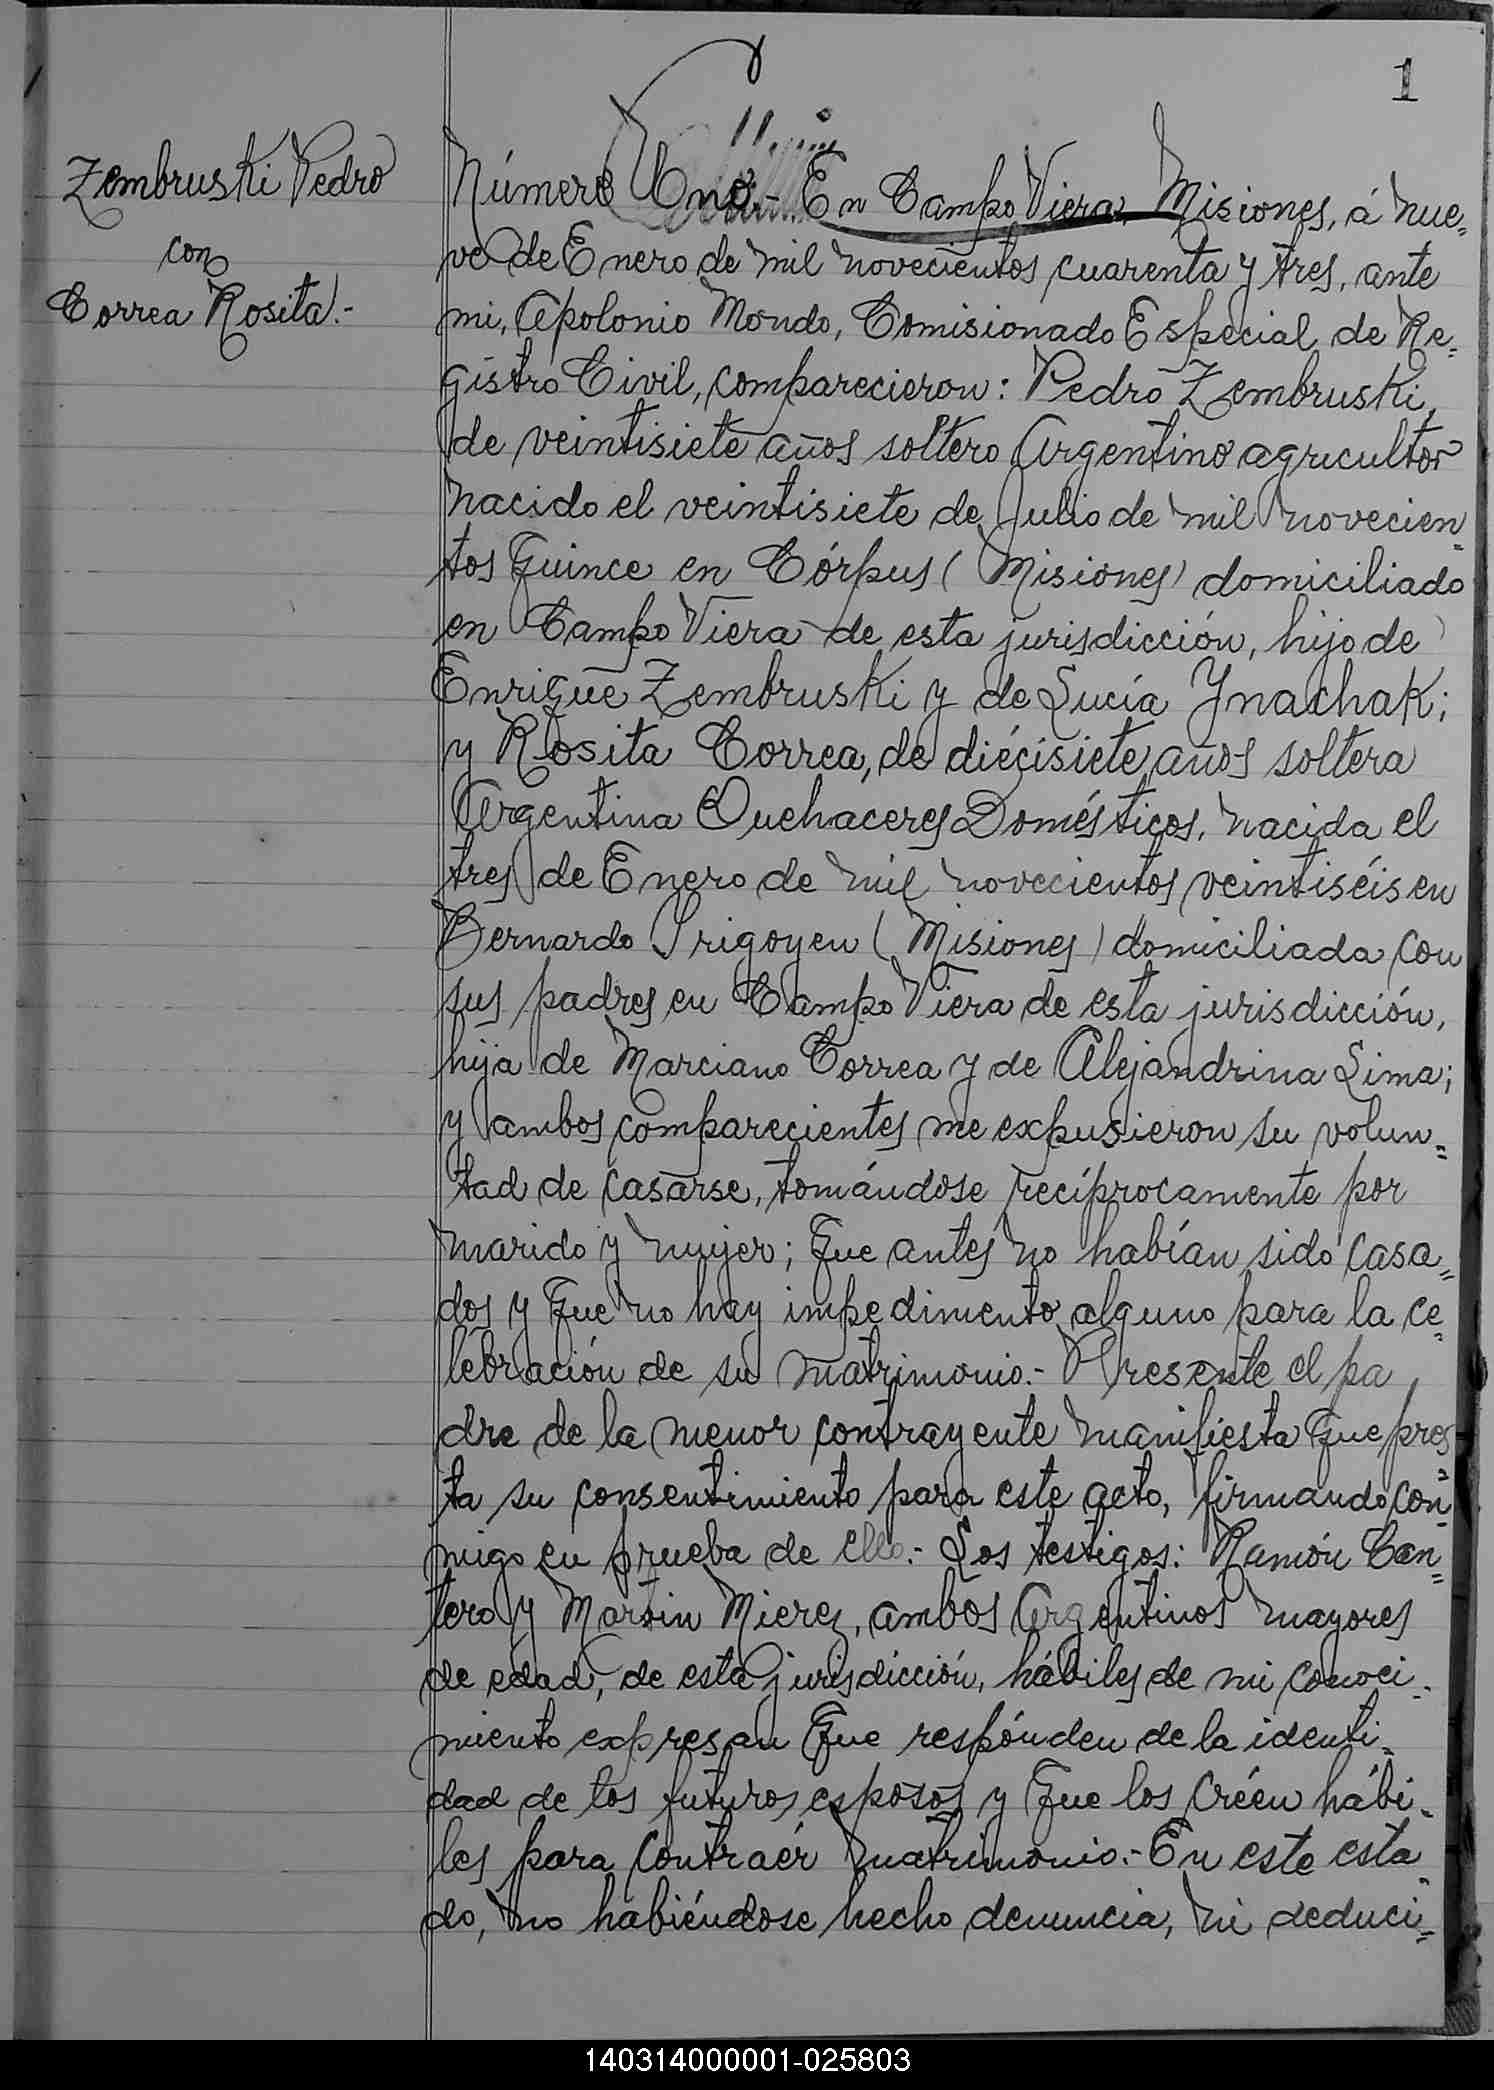 1
Zembruski Pedro
con
Correa Rosita.-
Número Uno.- En Campo Viera, Misiones, á nue=
ve de Enero de mil novecientos cuarenta y tres, ante
mi, Apolonio Mondo, Comisionado Especial de Re=
gistro Civil, comparecieron: Pedro Zembruski,
de veintisiete años soltero Argentino agricultor
nacido el veintisiete de Julio de mil novecien=
tos quince en Córpus (Misiones) domiciliado
en Campo Viera de esta jurisdicción, hijo de
Enrique Zembruski y de Lucía Ynachak;
y Rosita Correa, de diécisiete años soltera
Argentina Quehaceres Domésticos, nacida el
tres de Enero de mil novecientos veintiséis en
Bernardo Irigoyen (Misiones) domiciliada con
sus padres en Campo Viera de esta jurisdicción,
hija de Marciano Correa y de Alejandrina Lima;
y ambos comparecientes me expusieron su volun=
tad de casarse, tomándose recíprocamente por
marido y mujer; que antes no habían sido casa=
dos y que no hay impedimento alguno para la ce=
lebración de su matrimonio.- Presente el pa
dre de la menor contrayente manifiesta que pres
ta su consentimiento para este acto, firmando con=
migo en prueba de ello.- Los testigos: Ramón Can=
tero y Martin Mierez, ambos Argentinos mayores
de edad, de esta jurisdicción, hábiles de mi conoci=
miento expresan que respónden de la identi=
dad de los futuros esposos y que los créen hábi=
les para contraér matrimonio.- En este esta=
do, no habiéndose hecho denuncia, ni deduci=
140314000001-025803